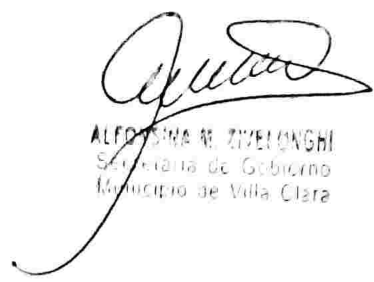 ALFONSINA M. ZIVELONGHI
Secretaria de Gobierno
Municipio de Villa Clara